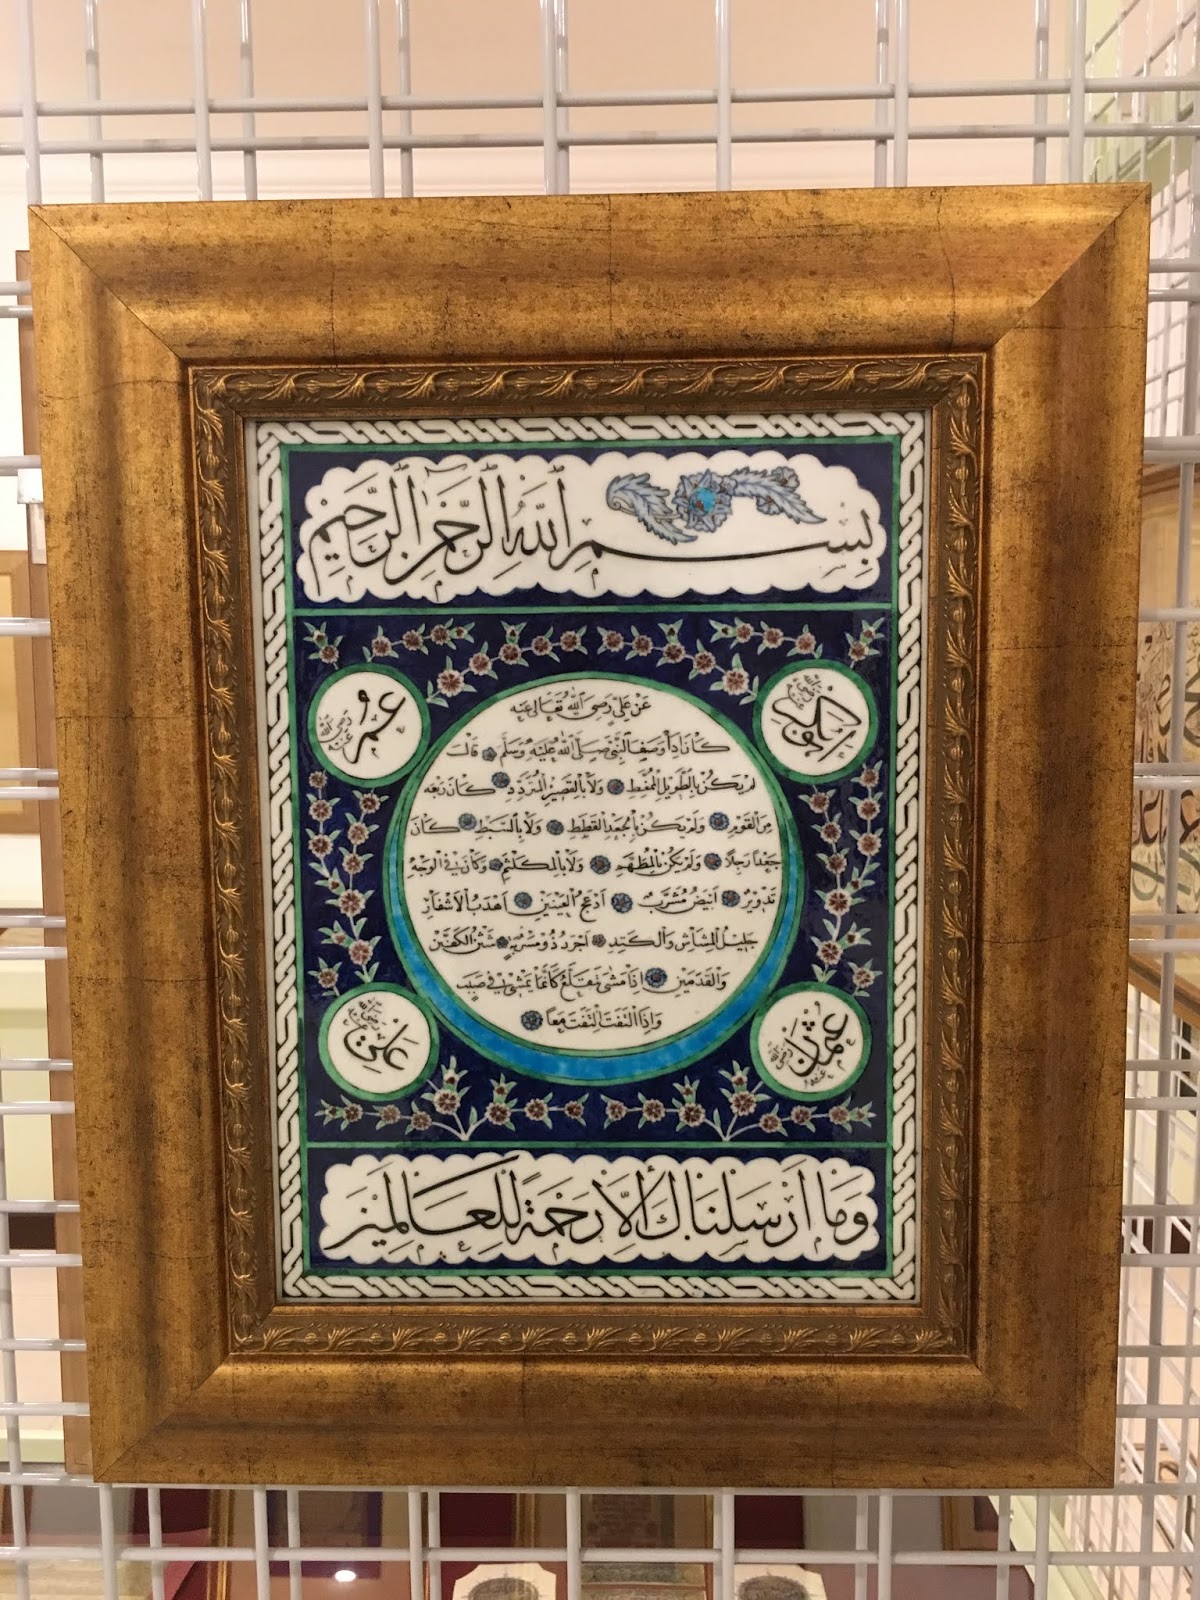 بِسْمِ اللَّهِ الرَّحْمَٰنِ الرَّحِيمِ
ابو بكر رضى الله عنه
عمر رضى الله عنه
عَنْ عَلِيٍّ رَضِيَ اللهُ تَعَالَى عَنْهُ
كَانَ اِذَا وَصَفَ النَّبِيَّ صَلَّى اللهُ عَلَيْهِ وَسَلَّمَ قَالَ
لَمْ يَكُنْ بِالطَّوِيلِ الْمُمَّغِطِ وَلَا بِالْقَصِيرِ الْمُتَرَدِّدِ كَانَ رَبْعَه
مِنَ الْقَوْمِ وَلَمْ يَكُنْ بِالْجَعْدِ الْقَطَطِ وَلَا بِالسَّبْطِ كَانَ
جَعْدًا رَجِلًا وَلَمْ يَكُنْ بِالْمُطَهَّمِ وَلَا بِالْمُكَلْثَمِ وَكَانَ فِي الْوَجْهِ
تَدْوِيرٌ اَبْيَضُ مُشْرَبٌ اَدْعَجُ الْعَيْنَيْنِ اَهْدَبُ الْاَشْفَارِ
جَلِيلُ الْمُشَاشِ وَالْكَتِدِ اَجْرَدُ ذُو مَسْرُبَةٍ شَثْنُ الْكَفَّيْنِ
وَالْقَدَمَيْنِ اِذَا مَشَى تَقَلَّعَ كَاَنَّمَا يَمْشِي فِي صَبَبٍ
وَاِذَا الْتَفَتَ الْتَفَتَ مَعًا
عثمان رضى الله عنه
على رضى الله عنه
وَمَا اَرْسَلْنَاكَ اِلَّا رَحْمَةً لِلْعَالَمِينَ